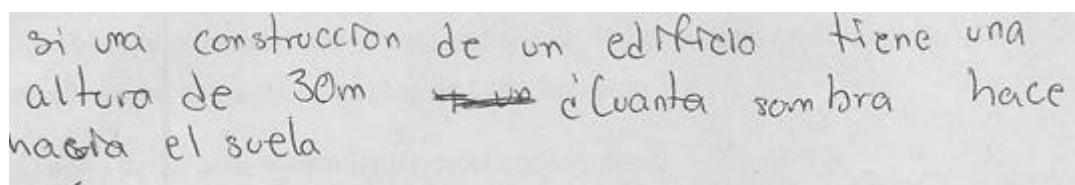 si una construccion de un edificio tiene una
altura de 30m ¿Cuanta sombra hace
hacia el suela